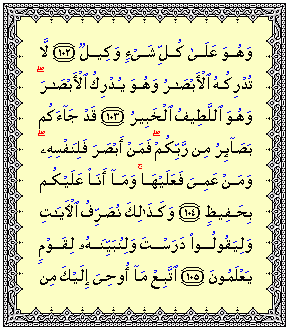 وَهُوَ عَلَىٰ كُلِّ شَىْءٍ وَكِيلٌ ﴿١٠٢﴾ لَّا
تُدْرِكُهُ ٱلْأَبْصَٰرُ وَهُوَ يُدْرِكُ ٱلْأَبْصَٰرَۖ
وَهُوَ ٱللَّطِيفُ ٱلْخَبِيرُ ﴿١٠٣﴾ قَدْ جَآءَكُم
بَصَآئِرُ مِن رَّبِّكُمْۖ فَمَنْ أَبْصَرَ فَلِنَفْسِهِۦۖ
وَمَنْ عَمِىَ فَعَلَيْهَاۚ وَمَآ أَنَا۠ عَلَيْكُم
بِحَفِيظٍ ﴿١٠٤﴾ وَكَذَٰلِكَ نُصَرِّفُ ٱلْءَايَٰتِ
وَلِيَقُولُوا۟ دَرَسْتَ وَلِنُبَيِّنَهُۥ لِقَوْمٍ
يَعْلَمُونَ ﴿١٠٥﴾ ٱتَّبِعْ مَآ أُوحِىَ إِلَيْكَ مِن